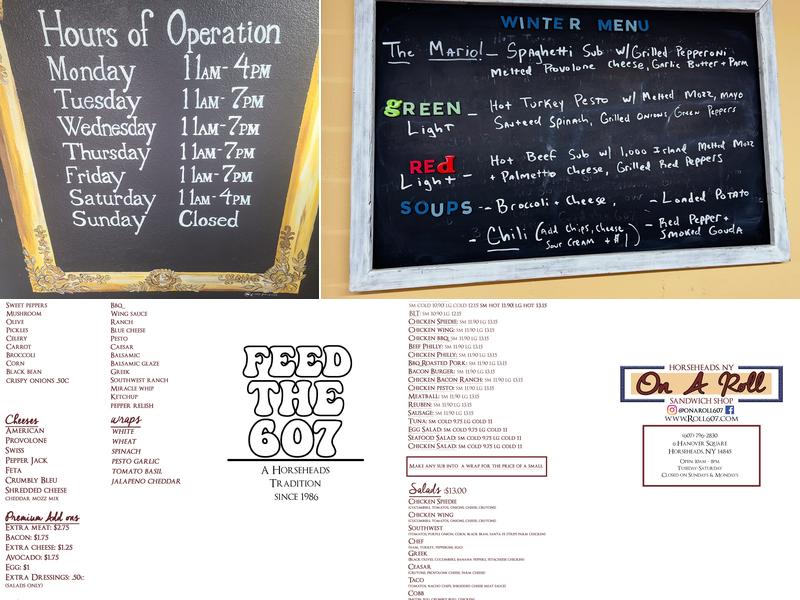 Hours of Operation
Monday 11AM-4PM
Tuesday 11AM-7PM
Wednesday 11AM-7PM
Thursday 11AM-7PM
Friday 11AM-7PM
Saturday 11AM-4PM
Sunday Closed
WINTER MENU
The Mario! - Spaghetti Sub w/Grilled Pepperoni
Melted Provolone Cheese, Garlic Butter + Parm
GREEN Light - Hot Turkey Pesto w/ Melted Mozz, mayo
Sauteed Spinach, Grilled Onions, Green Peppers
RED Light - Hot Beef Sub w/ 1,000 Island Melted Mozz
+ Palmetto Cheese, Grilled Red Peppers
SOUPS -- Broccoli + Cheese, - Loaded Potato
- Chili (Add Chips, Cheese Sour Cream + $1) - Red Pepper + Smoked Gouda
SWEET PEPPERS
MUSHROOM
OLIVE
PICKLES
CELERY
CARROT
BROCCOLI
CORN
BLACK BEAN
CRISPY ONIONS .50C
BBQ
WING SAUCE
RANCH
BLUE CHEESE
PESTO
CAESAR
BALSAMIC
BALSAMIC GLAZE
GREEK
SOUTHWEST RANCH
MIRACLE WHIP
KETCHUP
PEPPER RELISH
Cheeses
AMERICAN
PROVOLONE
SWISS
PEPPER JACK
FETA
CRUMBLY BLEU
SHREDDED CHEESE
CHEDDAR, MOZZ MIX
wraps
WHITE
WHEAT
SPINACH
PESTO GARLIC
TOMATO BASIL
JALAPENO CHEDDAR
Premium Add ons
EXTRA MEAT: $2.75
BACON: $1.75
EXTRA CHEESE: $1.25
AVOCADO: $1.75
EGG: $1
EXTRA DRESSINGS: .50c
(SALADS ONLY)
FEED
THE
607
A HORSEHEADS
TRADITION
SINCE 1986
SM COLD 10.90 LG COLD 12.15 SM HOT 11.90 LG HOT 13.15
BLT: SM 10.90 LG 12.15
CHICKEN SPIEDIE: SM 11.90 LG 13.15
CHICKEN WING: SM 11.90 LG 13.15
CHICKEN BBQ: SM 11.90 LG 13.15
BEEF PHILLY: SM 11.90 LG 13.15
CHICKEN PHILLY: SM 11.90 LG 13.15
BBQ ROASTED PORK: SM 11.90 LG 13.15
BACON BURGER: SM 11.90 LG 13.15
CHICKEN BACON RANCH: SM 11.90 LG 13.15
CHICKEN PESTO: SM 11.90 LG 13.15
MEATBALL: SM 11.90 LG 13.15
REUBEN: SM 11.90 LG 13.15
SAUSAGE: SM 11.90 LG 13.15
TUNA: SM COLD 9.75 LG COLD 11
EGG SALAD: SM COLD 9.75 LG COLD 11
SEAFOOD SALAD: SM COLD 9.75 LG COLD 11
CHICKEN SALAD: SM COLD 9.75 LG COLD 11
MAKE ANY SUB INTO A WRAP FOR THE PRICE OF A SMALL
Salads :$13.00
CHICKEN SPIEDIE
(CUCUMBERS, TOMATOS, ONIONS, CHEESE, CROUTONS)
CHICKEN WING
(CUCUMBERS, TOMATOS, ONIONS, CHEESE, CROUTONS)
SOUTHWEST
CHEF
(HAM, TURKEY, PEPPERONI, EGG)
GREEK
CEASAR
(CROUTONS, PROVOLONE CHEESE, PARM CHEESE)
TACO
(TOMATOS, NACHO CHIPS, SHREDDED CHEESE MEAT SAUCE)
COBB
HORSEHEADS, NY
On A Roll
SANDWICH SHOP
@ONAROLL607
WWW.ROLL607.COM
(607) 796-2830
6 HANOVER SQUARE
HORSEHEADS, NY 14845
OPEN: 10AM - 8PM
TUESDAY-SATURDAY
CLOSED ON SUNDAYS & MONDAYS